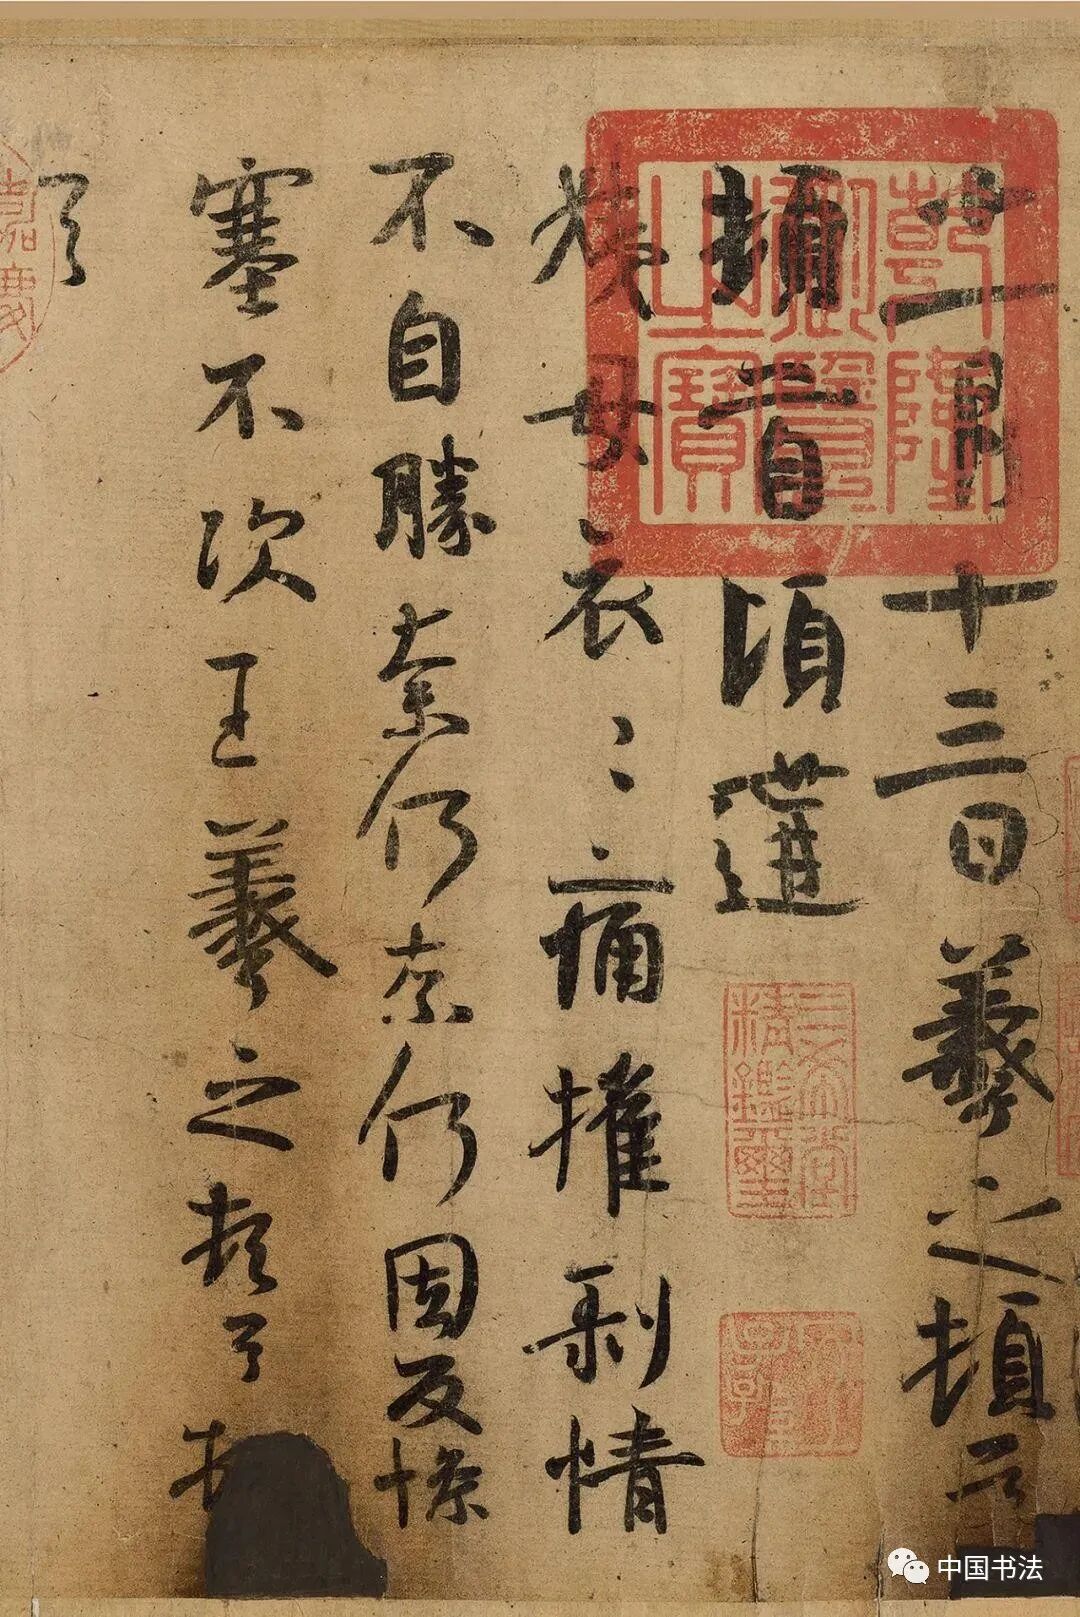 十一月十三日羲之頓首
頓首頃遘
姨母哀〻痛摧剥情
不自勝奈何奈何因反慘
塞不次王羲之頓首
首
乾隆御覽之寶
三希堂精鑑璽
宜子孫
嘉慶
中国书法